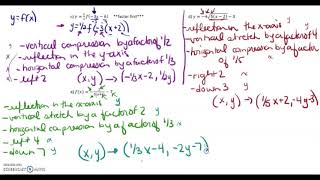 y=f(x)
c) y = 1/2 f(-3x-6) **factor first**
y=1/2 f(-3(x+2))
-vertical compression by a factor of 1/2
-reflection in the y-axis
-horizontal compression by a factor of 1/3
-left 2
(x,y)→(-1/3x-2, 1/2y)
-reflection in the x-axis y
-vertical stretch by a factor of 4 y
-horizontal compression by a factor of 1/5 x
-right 2 x
-down 3 y
(x,y)→(1/5x+2,-4y-3)
-reflection in the x-axis y
-vertical stretch by a factor of 2 y
-horizontal compression by a factor of 1/3 x
-left 4 x
-down 7 y
(x,y)→(1/3x-4,-2y-7)